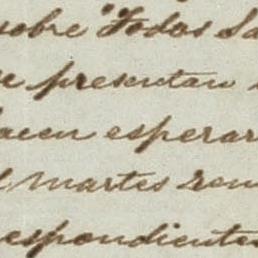 sobre "Todos Sa
e presentan
hacen esperar
l martes ren
espondientes